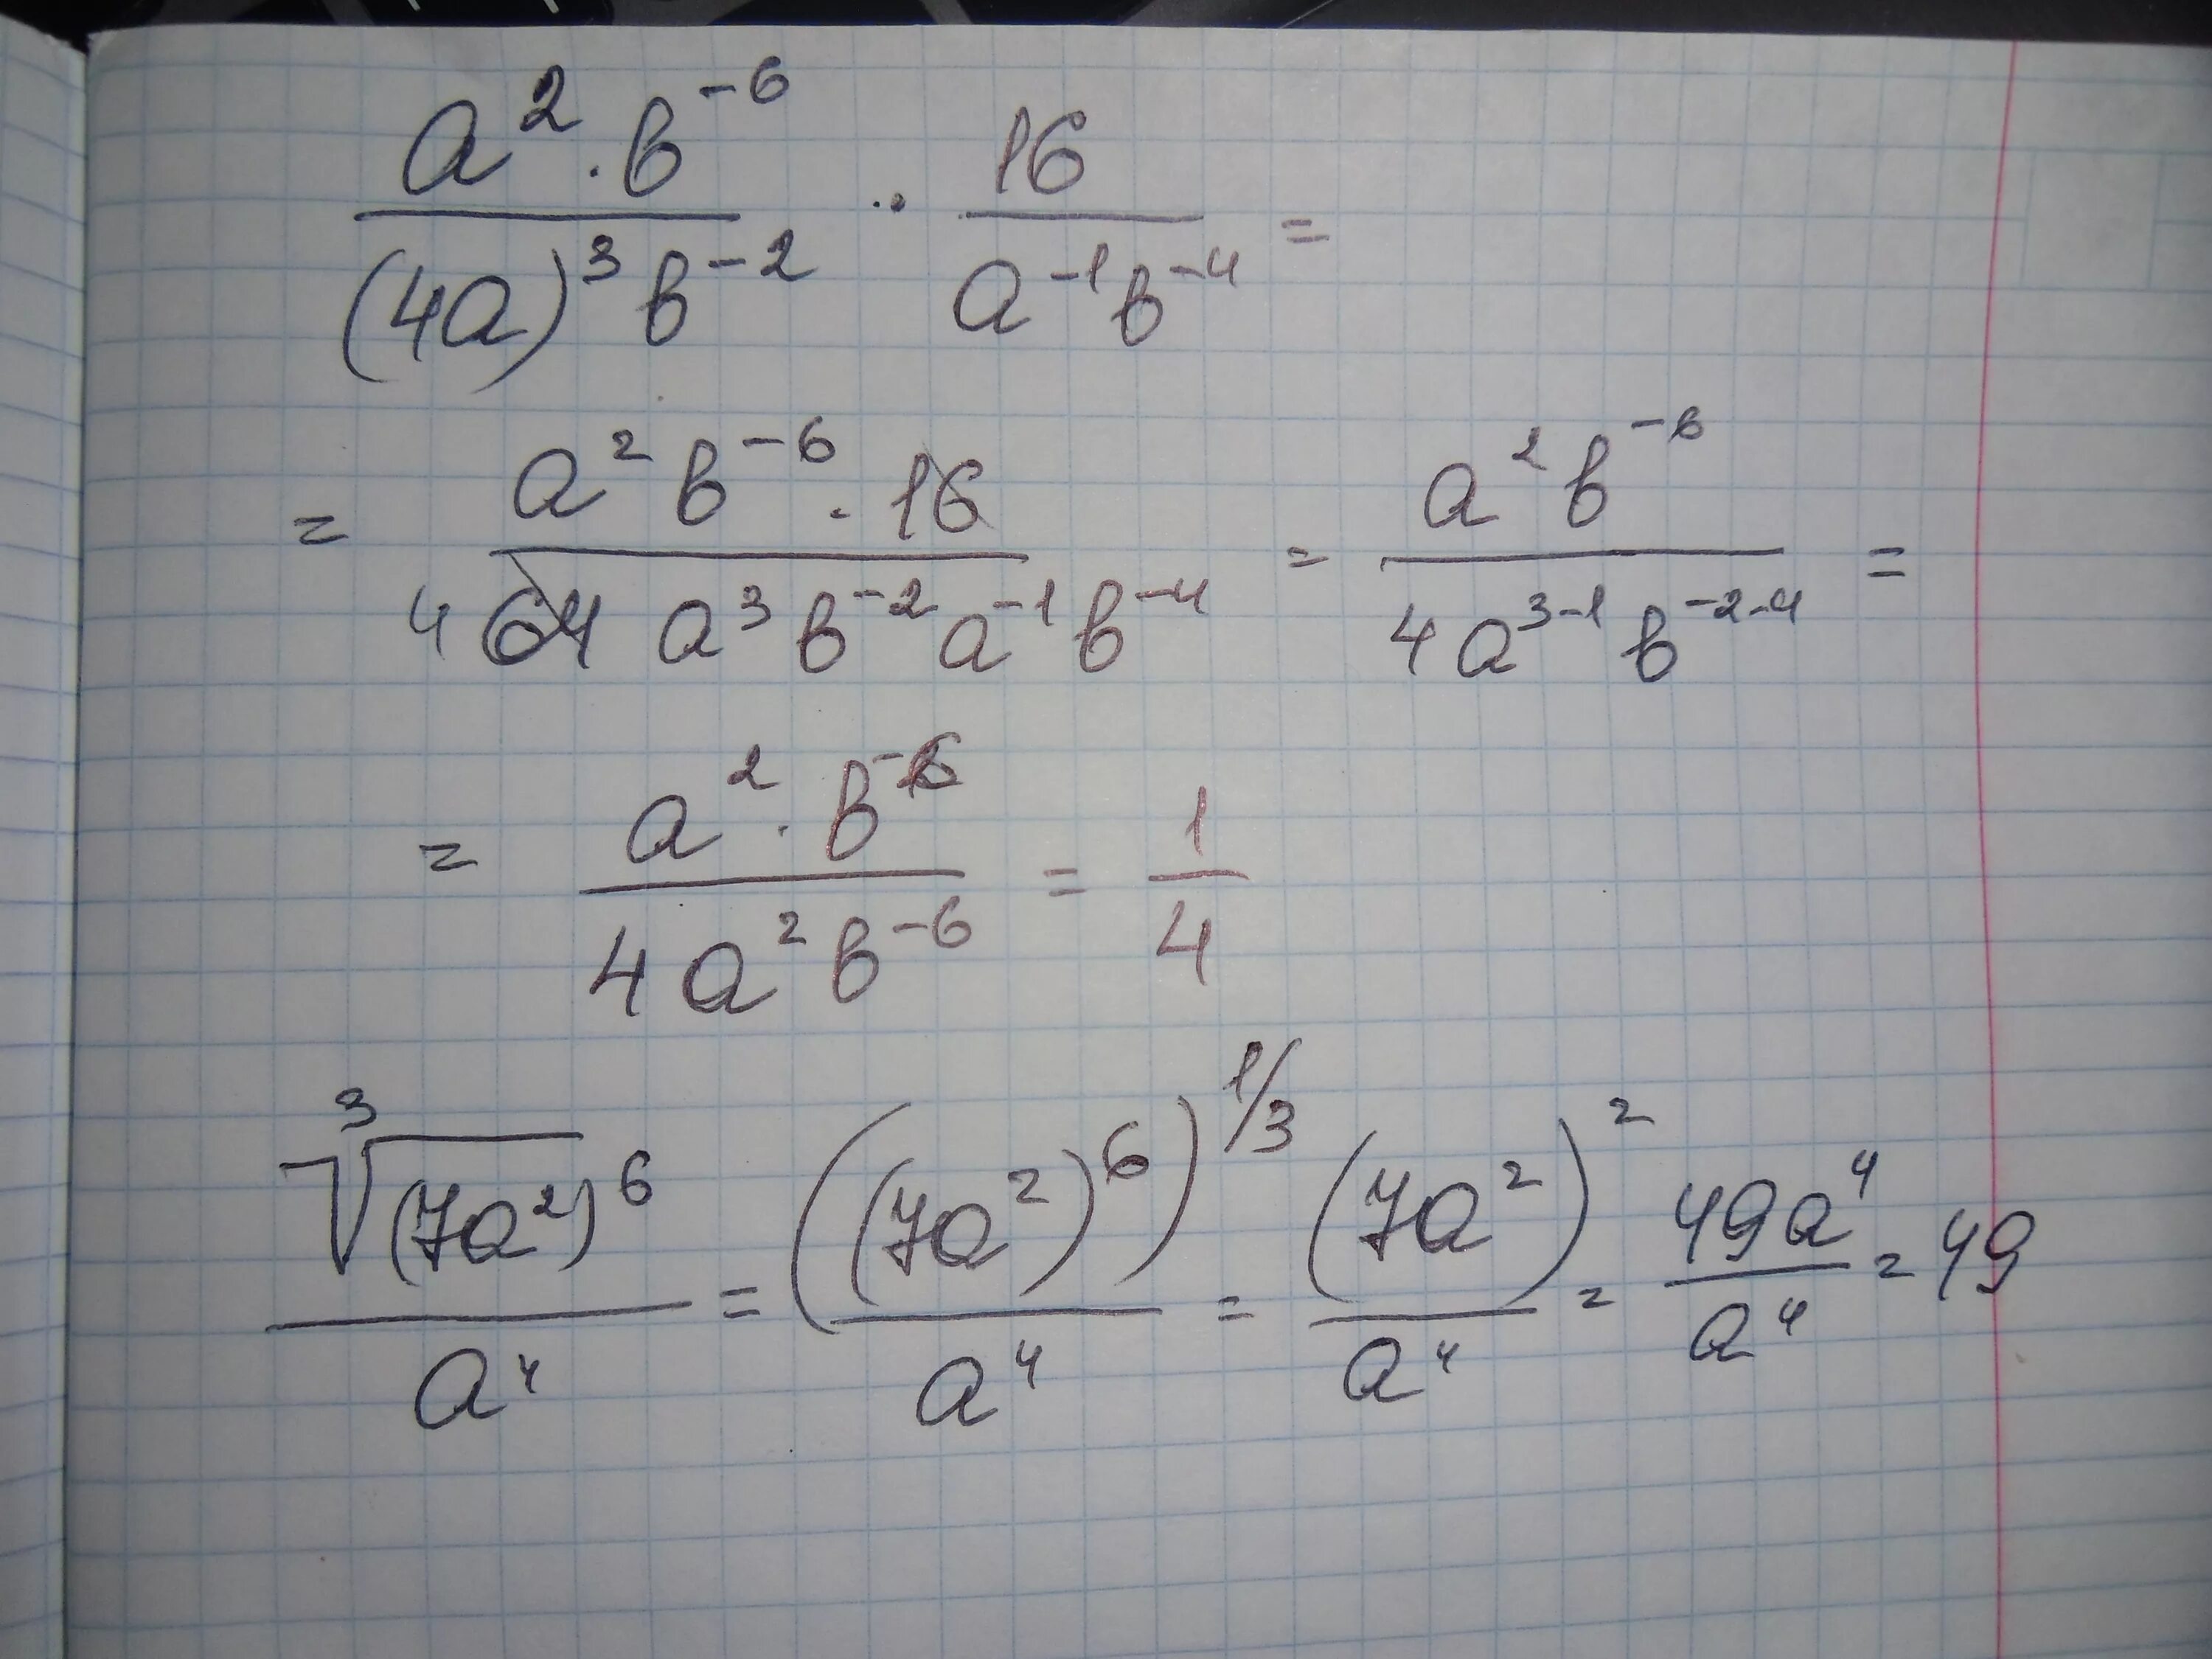 a² · b⁻⁶ / (4a)³ b⁻² · 16 / a⁻¹ b⁻⁴ =
= a² b⁻⁶ · 16 / 4 64 a³ b⁻² a⁻¹ b⁻⁴ = a² b⁻⁶ / 4a³⁻¹ b⁻²⁻⁴ =
= a² · b⁻⁶ / 4a² b⁻⁶ = 1/4
∛(7a²)⁶ / a⁴ = ((7a²)⁶)^1/3 / a⁴ = (7a²)² / a⁴ = 49a⁴ / a⁴ = 49